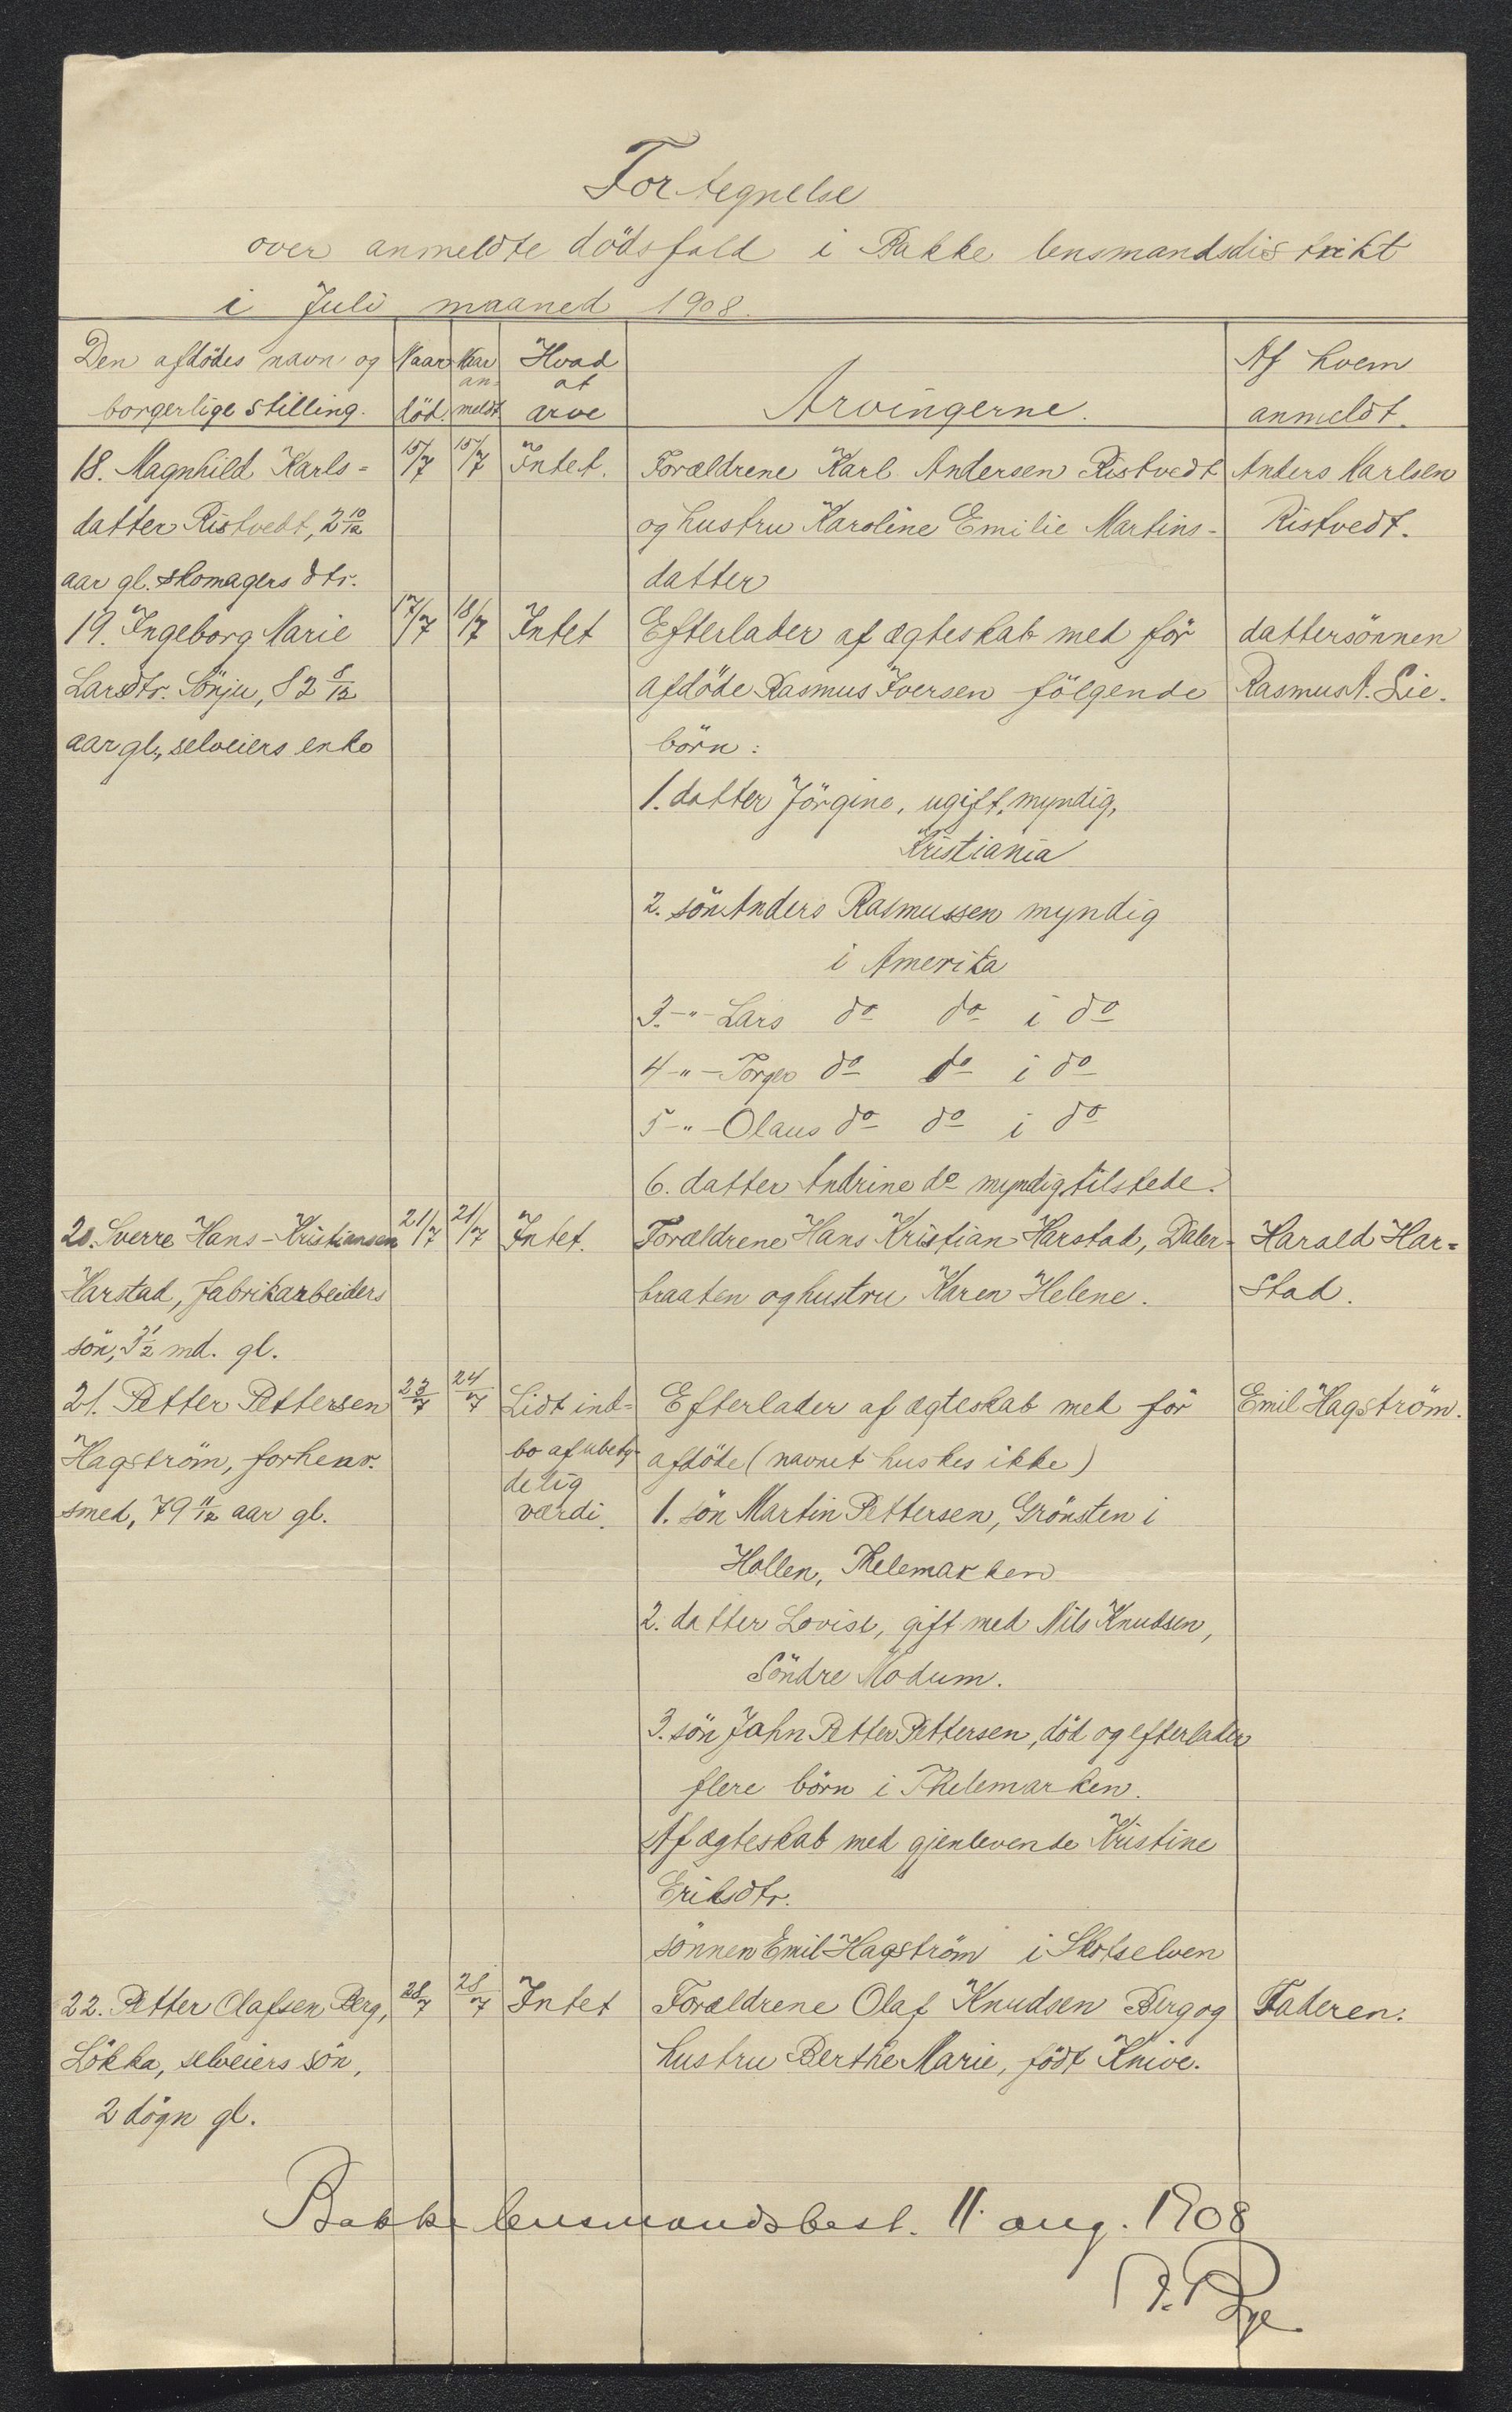 Fortegnelse
over anmeldte dödsfald i Bakke lensmandsdistrikt
i Juli maaned 1908.
Den afdödes navn og borgerlige stilling.
Naar död.
Naar anmeldt
Hvad at arve
Arvingerne.
Af hvem anmeldt.
18. Magnhild Karls- 15/7 15/7 Intet. Forældrene Karl Andersen Ristvedt Anders Karlsen
datter Ristvedt, 2 10/12 og hustru Karoline Emilie Martins- Ristvedt.
aar gl. skomagers dtr. datter
19. Ingeborg Marie 17/7 18/7 Intet Efterlader af ægteskab med för dattersönnen
Larsdtr. Sönju, 82 8/12 afdöde Rasmus Iversen fölgende Rasmus A. Lie.
aar gl., selveiers enke börn:
1. datter Jörgine, ugift, myndig,
Kristiania
2. sön Anders Rasmussen myndig
i Amerika
3. -"- Lars do do i do
4 -"- Torger do do i do
5 -"- Olaus do do i do
6. datter Andrine do myndig tilstede.
20. Sverre Hans-Kristiansen 21/7 21/7 Intet. Forældrene Hans Kristian Harstad, Daler- Harald Har-
Harstad, fabrikarbeiders braaten og hustru Karen Helene. stad.
sön, 3 1/2 md. gl.
21. Petter Pettersen 23/7 24/7 Lidt ind- Efterlader af ægteskab med för Emil Hagström.
Hagström, forhenv. bo af ubety- afdöde (navnet huskes ikke)
delig
smed, 79 11/12 aar gl. værdi. 1. sön Martin Pettersen, Grönsten i
Hollen, Thelemarken
2. datter Lovise, gift med Nils Knudsen,
Söndre Modum.
3. sön Jahn Petter Pettersen, död og efterlader
flere börn i Thelemarken.
Af ægteskab med gjenlevende Kristine
Eriksdtr.
sönnen Emil Hagström i Skotselven
22. Petter Olafsen Berg, 28/7 28/7 Intet Forældrene Olaf Knudsen Berg og Faderen.
Lökka, selveiers sön, hustru Berthe Marie, födt Knive.
2 dögn gl.
Bakke lensmandsbest. 11. aug. 1908